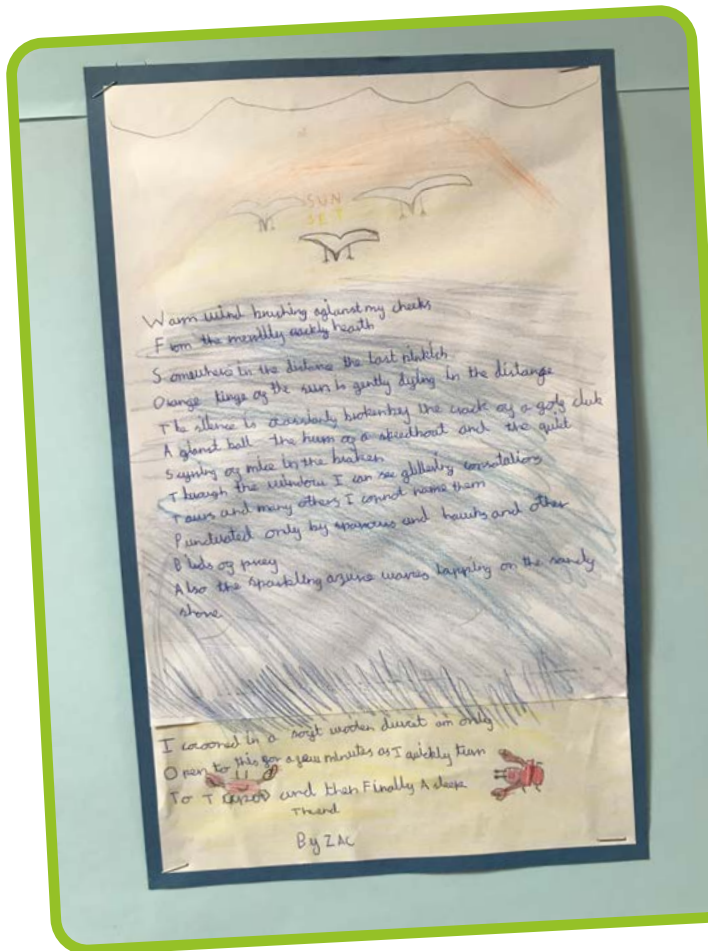 SUN
SET
Warm wind brushing agianst my cheeks
From the heath
Somewhere in the distance the last
Orange tinge of the sun is gently dying in the distange
The silence is broken by the crack of a golf club
A gianst ball the hum of a and the quit
of mice in the braken
Through the window I can see glittering
and many others I cannot name them
only by and hawks and other
Birds of prey
Also the sparkling azure waves lapping on the sandy
shore
I cocooned in a soft woolen duvet am only
Open to this for a few minutes as I quickly turn
To and then Finally A sleep
The end
By ZAC